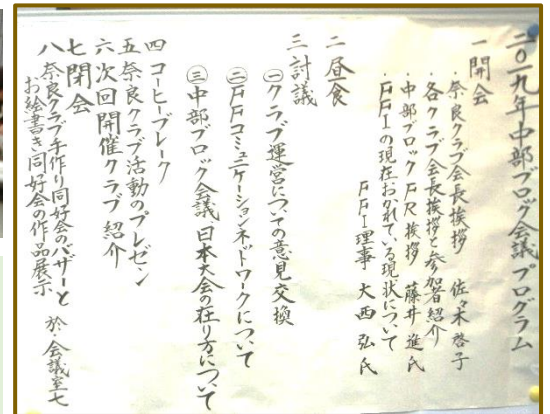 二〇一九年中部ブロック会議プログラム
一 開会
・奈良クラブ会長挨拶 佐々木啓子
・各クラブ会長挨拶と参加者紹介
・中部ブロックFR挨拶 藤井進氏
・FFIの現在おかれている現状について
FFI理事 大西弘氏
二 昼食
三 討議
㊀クラブ運営についての意見交換
㊁FFコミュニケーションネットワークについて
㊂中部ブロック会議 日本大会の在り方について
四 コーヒーブレーク
五 奈良クラブ活動のプレゼン
六 次回開催クラブ紹介
七 閉会
八 奈良クラブ手作り同好会のバザーと
お絵書き同好会の作品展示 於・会議室七